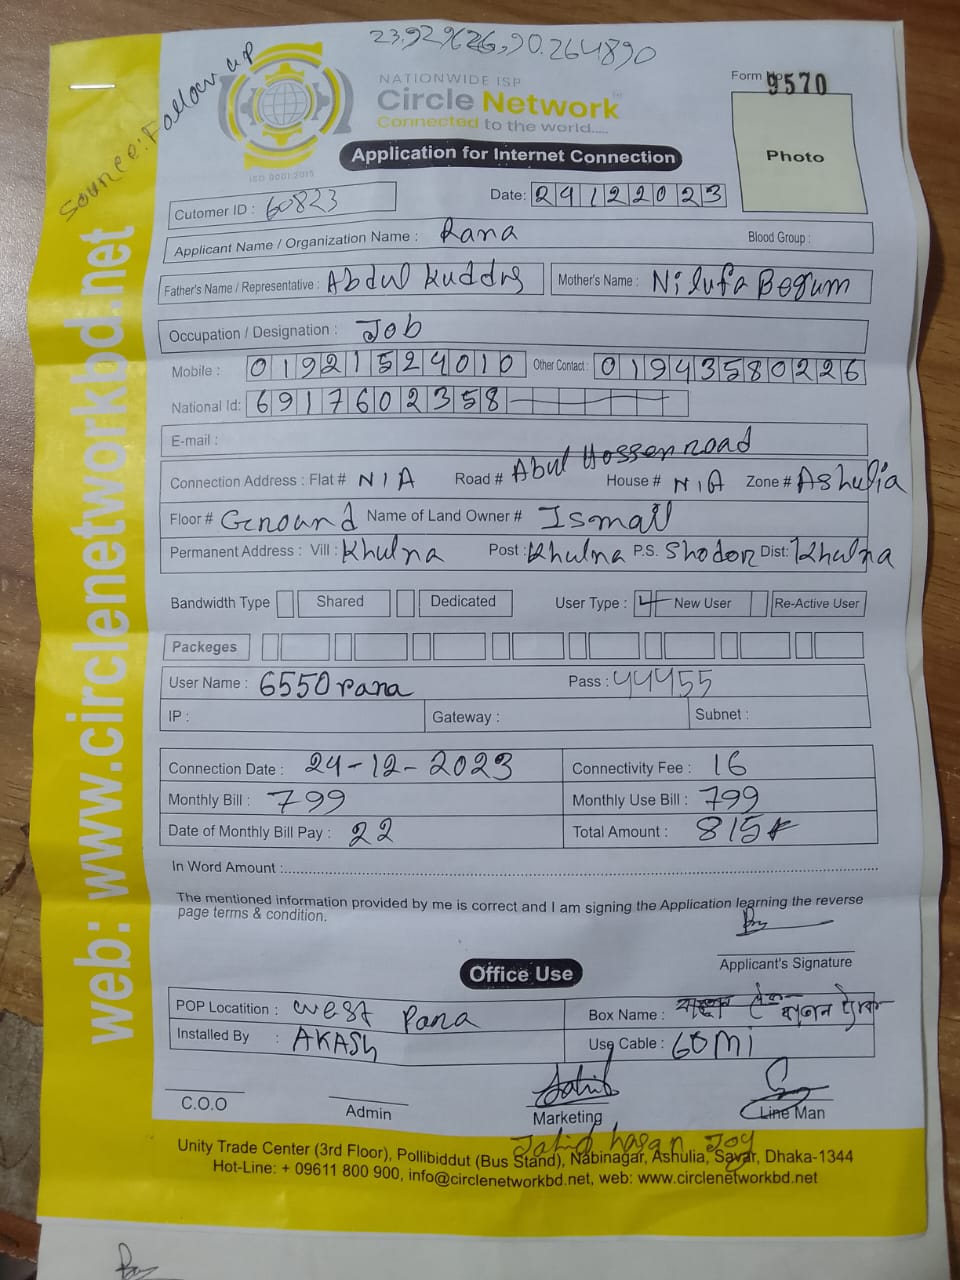 23.929626,90.264890
Source: Follow up
NATIONWIDE ISP
Circle Network
Connected to the world.....
ISO 9001:2015
Form No 9570
Photo
Application for Internet Connection
Cutomer ID : 60823
Date: 24122023
Applicant Name / Organization Name : Rana
Blood Group :
Father's Name / Representative : Abdul Kuddus
Mother's Name : Nilufa Begum
Occupation / Designation : Job
Mobile : 01921524010
Other Contact : 01943580226
National Id: 6917602358
E-mail :
Connection Address : Flat # N/A Road # Abul Hossen road House # N/A Zone # Ashulia
Floor # Ground Name of Land Owner # Ismail
Permanent Address : Vill : Khulna Post : Khulna P.S. Shodor Dist: Khulna
Bandwidth Type Shared Dedicated User Type : New User Re-Active User
Packeges
User Name : 6550rana Pass : 44455
IP : Gateway : Subnet :
Connection Date : 24-12-2023 Connectivity Fee : 16
Monthly Bill : 799 Monthly Use Bill : 799
Date of Monthly Bill Pay : 22 Total Amount : 815
In Word Amount :
The mentioned information provided by me is correct and I am signing the Application learning the reverse
page terms & condition.
Applicant's Signature
Office Use
POP Locatition : west Para Box Name :
Installed By : AKASh Use Cable : 60 Mi
C.O.O Admin Marketing Line Man
Jahid hasan Joy
Unity Trade Center (3rd Floor), Pollibiddut (Bus Stand), Nabinagar, Ashulia, Savar, Dhaka-1344
Hot-Line: + 09611 800 900, info@circlenetworkbd.net, web: www.circlenetworkbd.net
web: www.circlenetworkbd.net